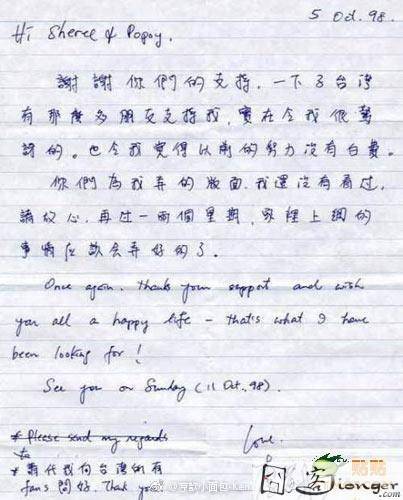 5 Oct. 98.
Hi Sheree & Popoy,
謝謝你們的支持，一下子台灣
有那麼多朋友支持我，實在令我很驚
訝的。也令我覺得以前的努力沒有白費。
你們為我弄的版面，我還沒有看过，
請放心，再过一兩個星期，家裡上網的
事情应該会弄好的了。
Once again, thanks your support and wish
you all a happy life - that's what I have
been looking for!
See you on Sunday (11 Oct. 98).
* Please send my regards
to
Love,
* 請代我向台灣的
fans 問好. Thank you
貼貼
客
ionger.com